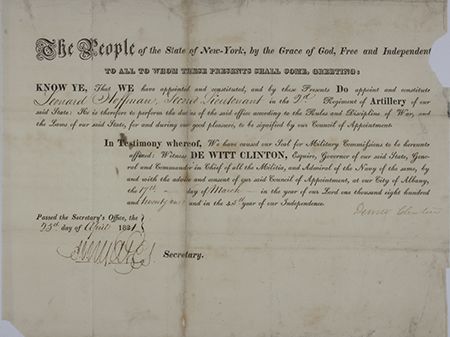 The People of the State of New-York, by the Grace of God, Free and Independent,
TO ALL TO WHOM THESE PRESENTS SHALL COME, GREETING:
KNOW YE, That WE have appointed and constituted, and by these Presents DO appoint and constitute
Hoffman, Second Lieutenant in the 9th Regiment of Artillery of our
said State: He is therefore to perform the duties of the said office according to the Rules and Discipline of War, and
the Laws of our said State, for and during our good pleasure, to be signified by our Council of Appointment.
In Testimony whereof, We have caused our Seal for Military Commissions to be hereunto
affixed: Witness DE WITT CLINTON, Esquire, Governor of our said State, Gene-
ral and Commander in Chief of all the Militia, and Admiral of the Navy of the same, by
and with the advice and consent of our said Council of Appointment, at our City of Albany,
the 17th day of March in the year of our Lord one thousand eight hundred
and twenty one and in the 45th year of our Independence.
Passed the Secretary's Office, the
25th day of April 1821
Dewitt Clinton
Secretary.